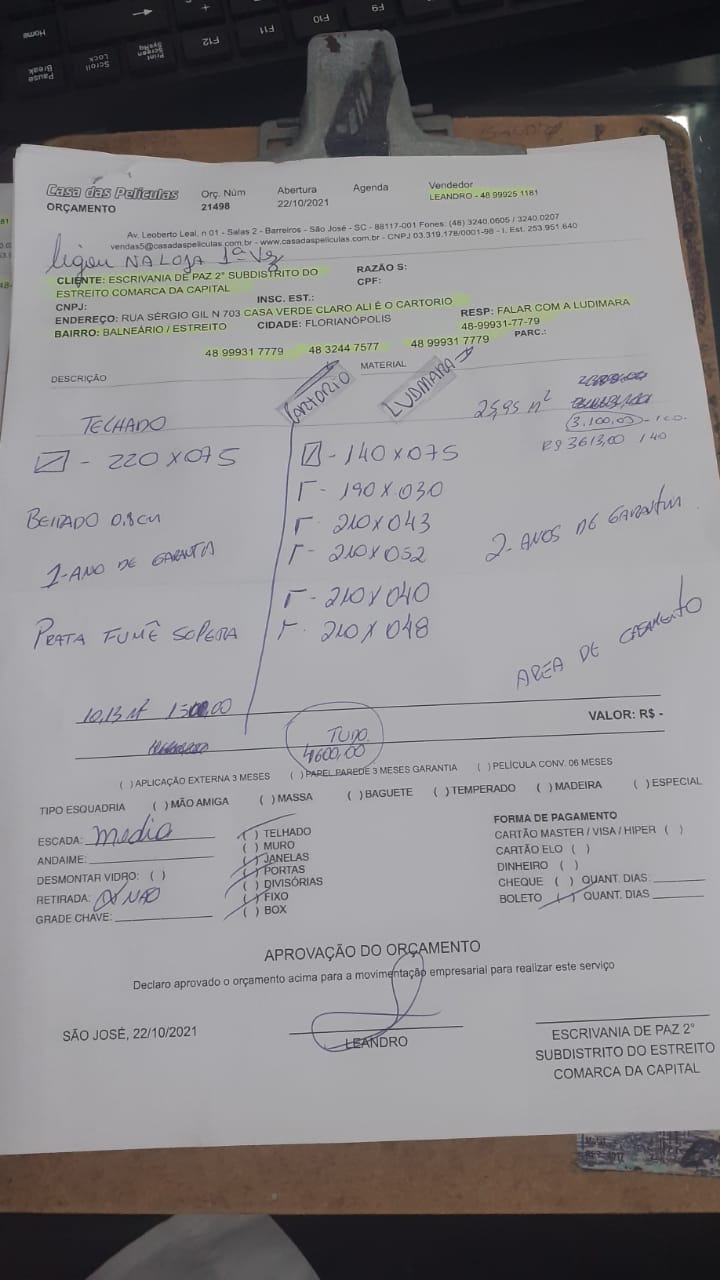 Home
F12
F11
F10
F9
Pause
Break
Scroll
Lock
Print
Screen
SysRq
Casa das Películas
ORÇAMENTO
Orç. Núm
21498
Abertura
22/10/2021
Agenda
Vendedor
LEANDRO - 48 99925 1181
Av. Leoberto Leal, n 01 - Salas 2 - Barreiros - São José - SC - 88117-001 Fones: (48) 3240.0605 / 3240.0207
vendas5@casadaspeliculas.com.br - www.casadaspeliculas.com.br - CNPJ 03.319.178/0001-98 - I. Est. 253.951.640
ligou NA LOJA 1ª Vez
CLIENTE: ESCRIVANIA DE PAZ 2° SUBDISTRITO DO
ESTREITO COMARCA DA CAPITAL
RAZÃO S:
CPF:
CNPJ:
INSC. EST.:
ENDEREÇO: RUA SÉRGIO GIL N 703 CASA VERDE CLARO ALI É O CARTORIO
BAIRRO: BALNEÁRIO / ESTREITO
CIDADE: FLORIANÓPOLIS
RESP: FALAR COM A LUDIMARA
48-99931-77-79
PARC.:
48 99931 7779
48 3244 7577
48 99931 7779
DESCRIÇÃO
MATERIAL
CARTORIO
LUDMARA
25,95 m²
(3.100,00)
R$ 3613,00 140
TELHADO
- 220 X 075
- 140 X 075
- 190 X 030
- 210 X 043
- 210 X 052
- 210 X 040
- 210 X 048
0.8cm
1-ANO DE GARANTIA
2-ANOS DE GARANTIA
PRATA FUMÊ
AREA DE CASAMENTO
10,13 M²
TUDO
4600,00
VALOR: R$ -
( ) APLICAÇÃO EXTERNA 3 MESES ( ) PAPEL PAREDE 3 MESES GARANTIA ( ) PELÍCULA CONV. 06 MESES
TIPO ESQUADRIA ( ) MÃO AMIGA ( ) MASSA ( ) BAGUETE ( ) TEMPERADO ( ) MADEIRA ( ) ESPECIAL
ESCADA: media
ANDAIME:
DESMONTAR VIDRO: ( )
RETIRADA: NÃO
GRADE CHAVE:
( ) TELHADO
( ) MURO
( ) JANELAS
( ) PORTAS
( ) DIVISÓRIAS
( ) FIXO
( ) BOX
FORMA DE PAGAMENTO
CARTÃO MASTER / VISA / HIPER ( )
CARTÃO ELO ( )
DINHEIRO ( )
CHEQUE ( ) QUANT. DIAS:
BOLETO ( ) QUANT. DIAS
APROVAÇÃO DO ORÇAMENTO
Declaro aprovado o orçamento acima para a movimentação empresarial para realizar este serviço
SÃO JOSÉ, 22/10/2021
LEANDRO
ESCRIVANIA DE PAZ 2°
SUBDISTRITO DO ESTREITO
COMARCA DA CAPITAL